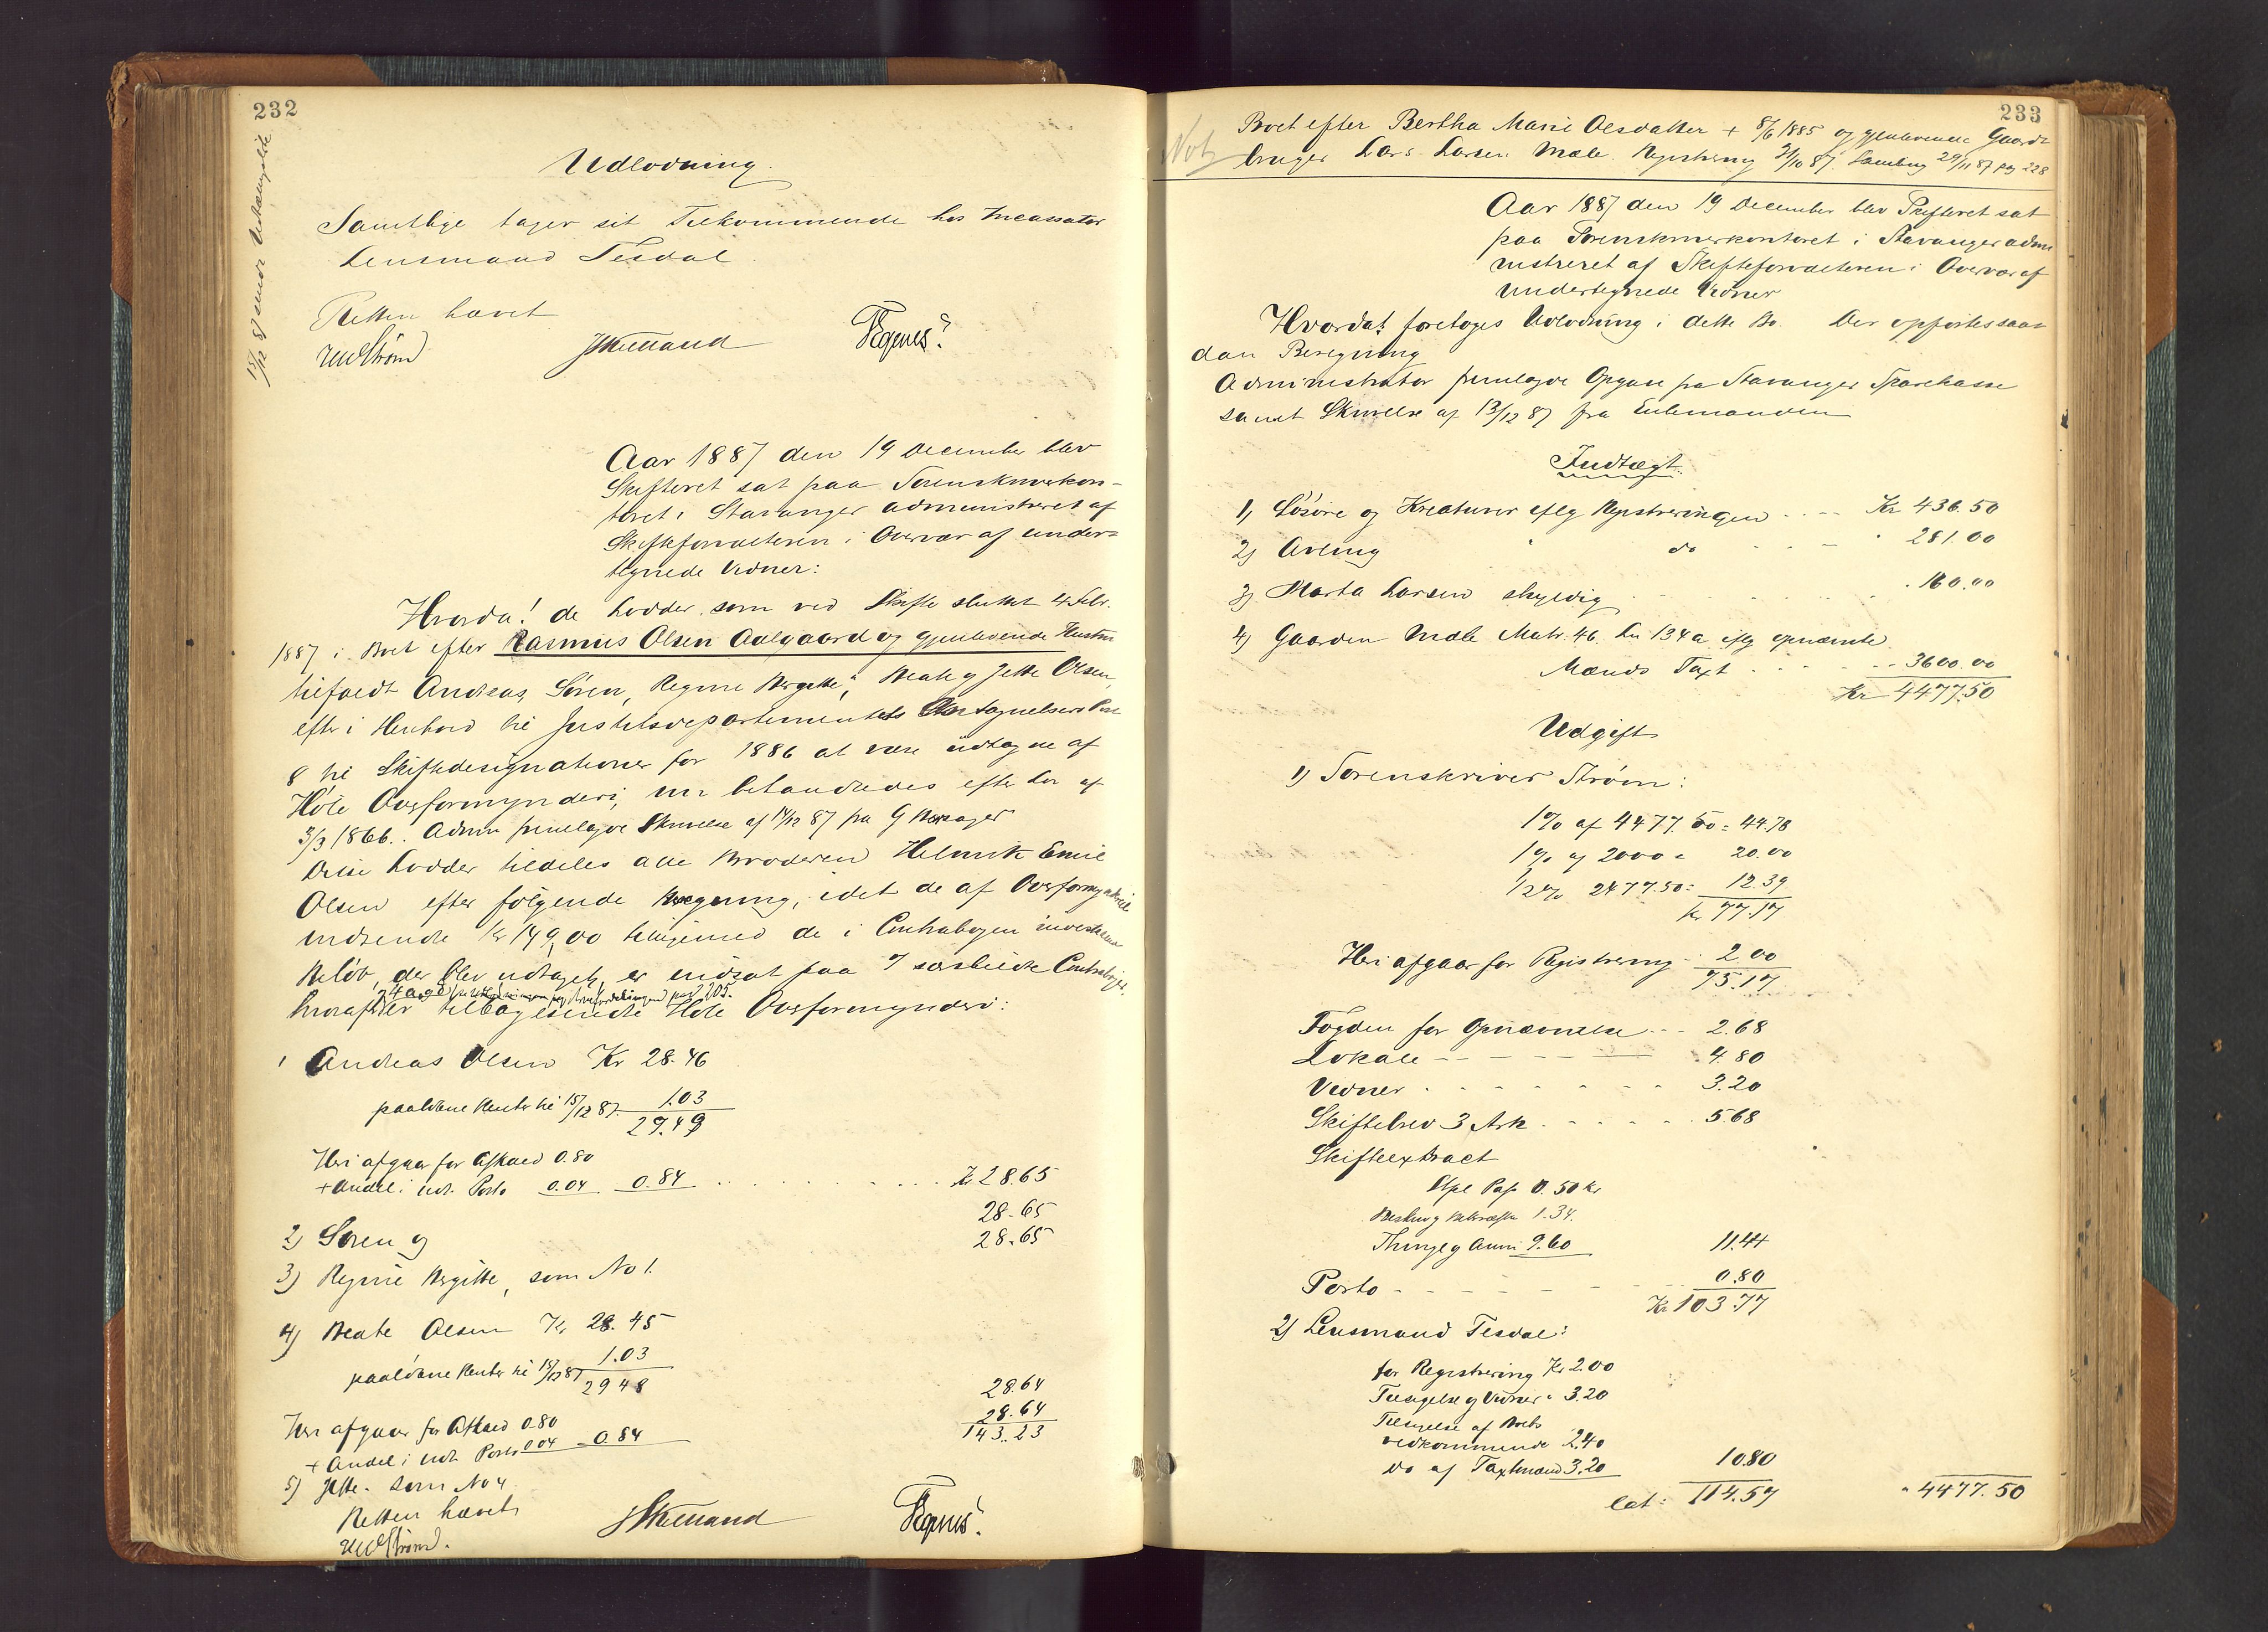 232
15/12 87 sendt Uvedkommende
Udlodning
Samtlige tager sit Tilkommende hos Incassator
Lensmand Tesdal.
Retten hævet
EWStrøm JSkelland Tegnes?
Aar 1887 den 19 December blev
Skifteret sat paa Sorenskriverkon-
toret i Stavanger administreret af
Skifteforvalteren i Overvær af under-
tegnede Vidner:
Hvorda! de Lodder som ved Skifte sluttet 4 Febr.
1887 i Boet efter Rasmus Olsen Aalgaard og gjenlevende Hustru
tilfaldt Andreas, Søren, Regine Bergitte, Beate og Jette Olsen,
efter i Henhold til Justitsdepartementets Antegnelsers Post
8 til Skiftedesignationer for 1886 at være udtagne af
Høle Overformynderi, nu behandledes efter Lov af
3/3 1866. Adm fremlagde Skrivelse af 14/12 87 fra G
Disse Lodder tildeles alle Broderen Helmik Emil
Olsen efter følgende Beregning, idet de af Overformynderiet
indsendte Kr 149,00 tilligemed de i Contrabogen indestaaende
Beløb, der blev udtaget, er indsat paa 7 særskilte Contrabøger
hvorefter tilbagesendte Høle Overformynderi:
1 Andreas Olsen Kr 28.46
paaløbne Renter til 15/12 87 1.03
29.49
Heri afgaar for Afkald 0.80
+ Andel i udl. Porto 0.04 0.84 . . . . . . Kr 28.65
28.65
2) Søren og 28.65
3) Regine Bergitte, som No 1.
4) Beate Olsen Kr 28.45
paaløbne Renter til 15/12 87 1.03
29 48
28.64
Heri afgaar for Afkald 0.80 28.64
+ Andel i udl. Porto 0.04 0.84 143.23
5) Jette. som No 4
Retten hævet
EWStrøm. JSkelland Tegnes?
233
Not
Boet efter Bertha Marie Olsdatter + 8/6 1885 og gjenlevende Gaard-
bruger Lars Larsen Mæle. Registrering 31/10 87. Samling 29/11 87 pag 228
Aar 1887 den 19 December blev Skifteret sat
paa Sorenskriverkontoret i Stavanger admi
nistreret af Skifteforvalteren i Overvær af
undertegnede Vidner
Hvorda! foretoges Udlodning i dette Bo. Der opførtes saa-
dan Beregning
Administrator fremlagde Opgave fra Stavanger Sparekasse
samt Skrivelse af 13/12 87 fra Enkemanden
Indtægt.
1) Løsøre og Kreaturer ifølg Registreringen . . - - Kr 436.50
2) Avling " do . . - " 281.00
3) Marta Larsen skyldig . . . . . 160.00
4) Gaarden Mæle Matr. 46. Ln 134a iflg opnævnte
Mænds Taxt . . . . - - 3600.00
Kr 4477.50
Udgift
1) Sorenskriver Strøm:
1% af 4477.50 = 44.78
1% af 2000 = 20.00
1/2% 2477.50 = 12.39
Kr 77.17
Heri afgaar for Registrering - 2.00
75.17
Fogden for Opnævnelse - - - 2.68
Lokale - - - - - 4.80
Vidner . . . . . . . 3.20
Skiftebrev 3 Ark . . . . . . 5.68
Skifteextract
Stpl Pap 0.50 kr
Beskr og Bekræft 1.34.
Thingl og Anm 9.60 11.44
Porto - - - - - - - 0.80
Kr 103.77
2) Lensmand Tesdal:
for Registrering Kr 2.00
Tilsigelse og Vidner " 3.20
Tilsigelse af Boets
vedkommende 2.40
do af Taxtmænd 3.20 10.80
lat: 114.57 " 4477.50